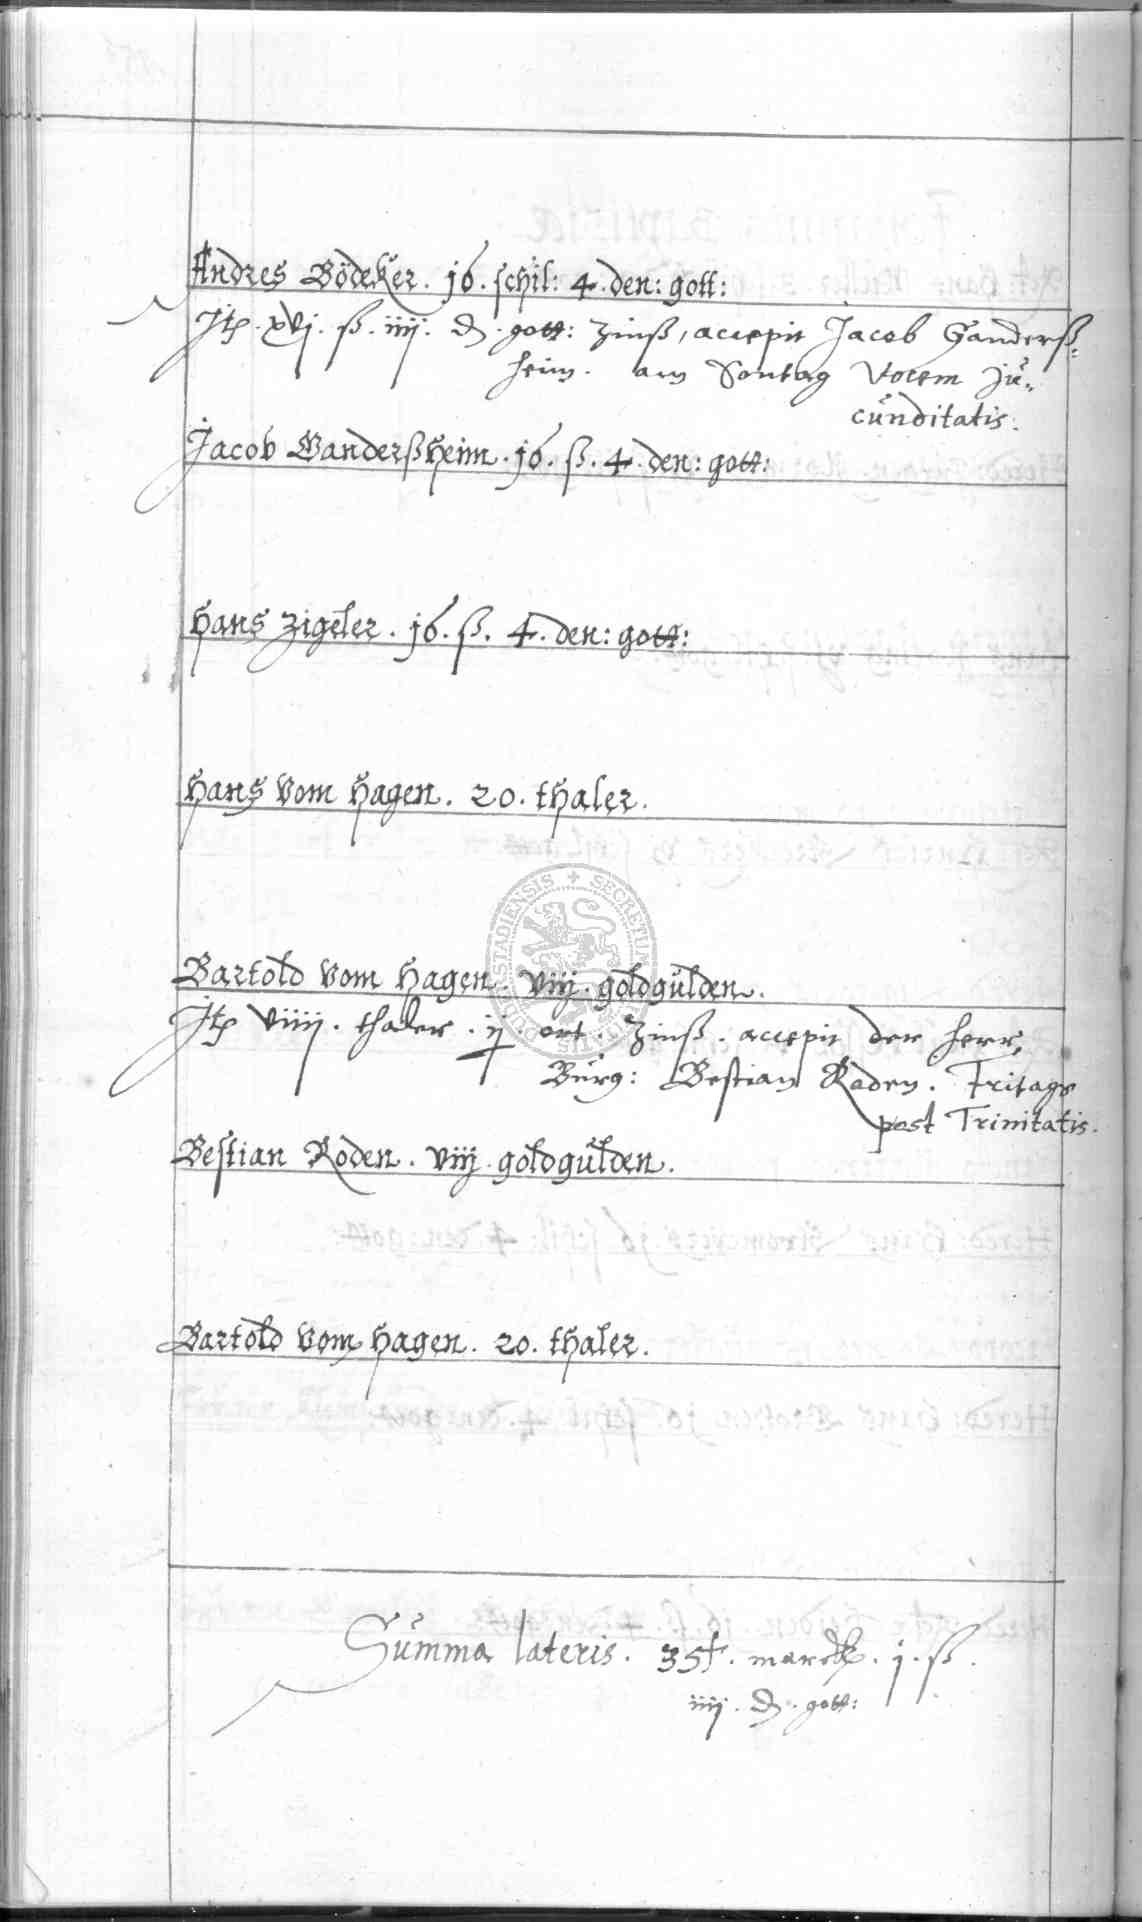 Andres Bödeker. 16. schil: 4. den: gott:
Itp. xvj. ß. iiij. d. gott: Zinß, accepit Jacob Ganderß-
heim. am Sontag Vocem Ju-
cunditatis.
Jacob Ganderßheim. 16. ß. 4. den: gott:
Hans Zigeler. 16. ß. 4. den: gott:
Hans vom Hagen. 20. thaler.
Bartold vom Hagen. viij. goldgülden.
SECRETUM
Itp viiij. thaler. ort. Zinß. accepit der herr
Burg: Bestian Raden. Fritags
post Trinitatis.
Bestian Roden. viij. goldgülden.
Bartold vom Hagen. 20. thaler.
Summa lateris. marck. j. ß.
iiij. d. gott: